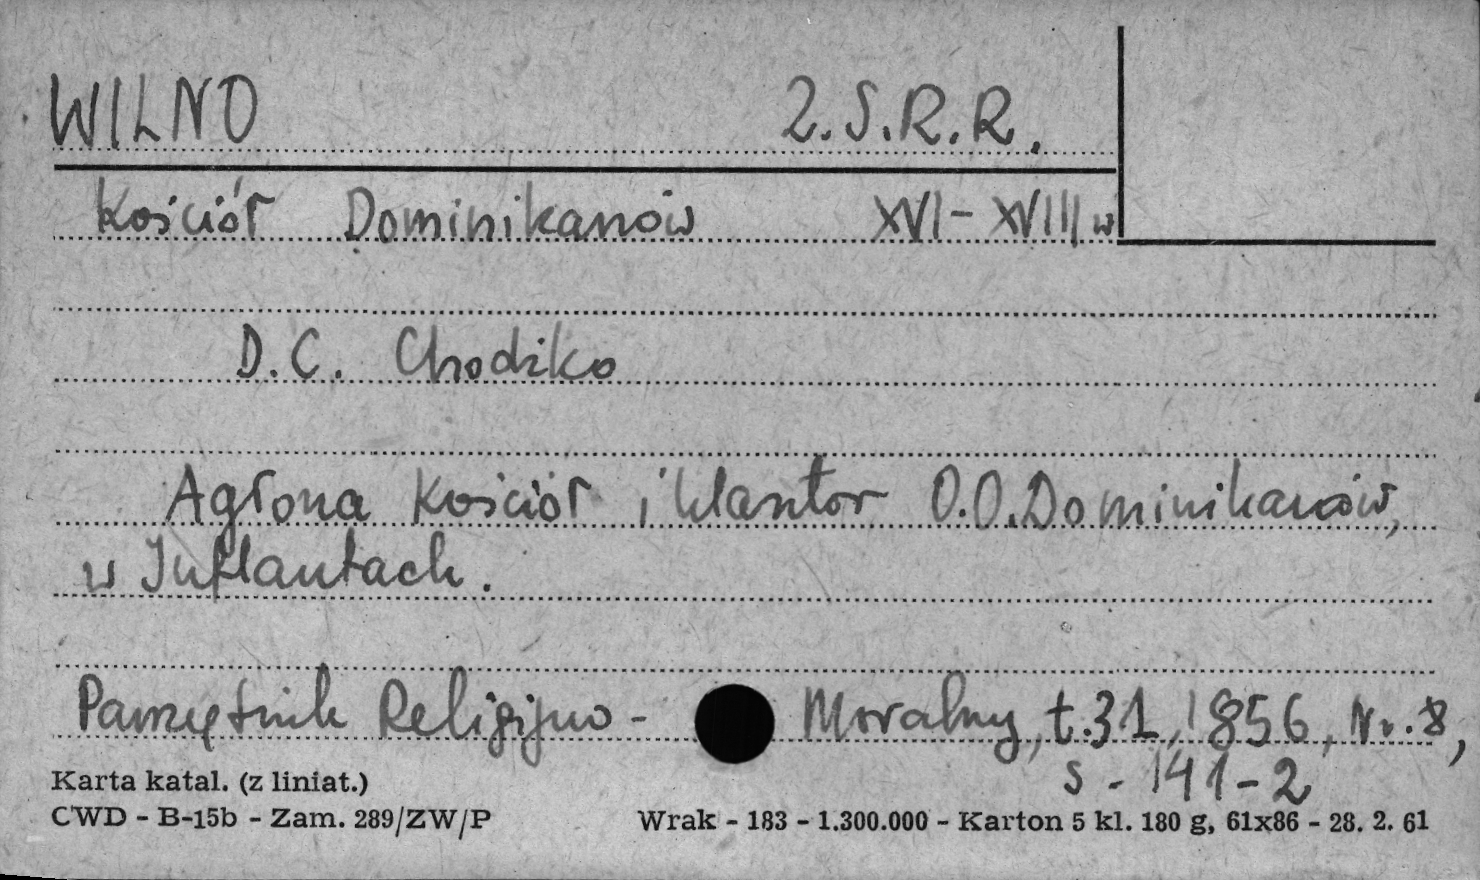 WILNO Z.S.R.R.
Kościół Dominikanów XVI-XVIII w
D.C. Chodźko
Agłona kościół i klasztor O.O. Dominikanów,
w Inflantach.
Pamiętnik Religijno - Moralny, t.31, 1856, Nr. 8,
s - 141-2
Karta katal. (z liniat.)
CWD - B-15b - Zam. 289/ZW/P Wrak - 183 - 1.300.000 - Karton 5 kl. 180 g, 61x86 - 28. 2. 61